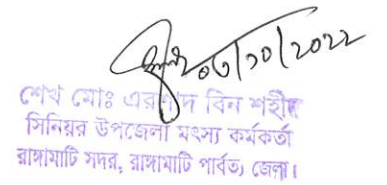 ০৩/১০/২০২২
শেখ মোঃ এরশাদ বিন শহীদ
সিনিয়র উপজেলা মৎস্য কর্মকর্তা
রাঙ্গামাটি সদর, রাঙ্গামাটি পার্বত্য জেলা।